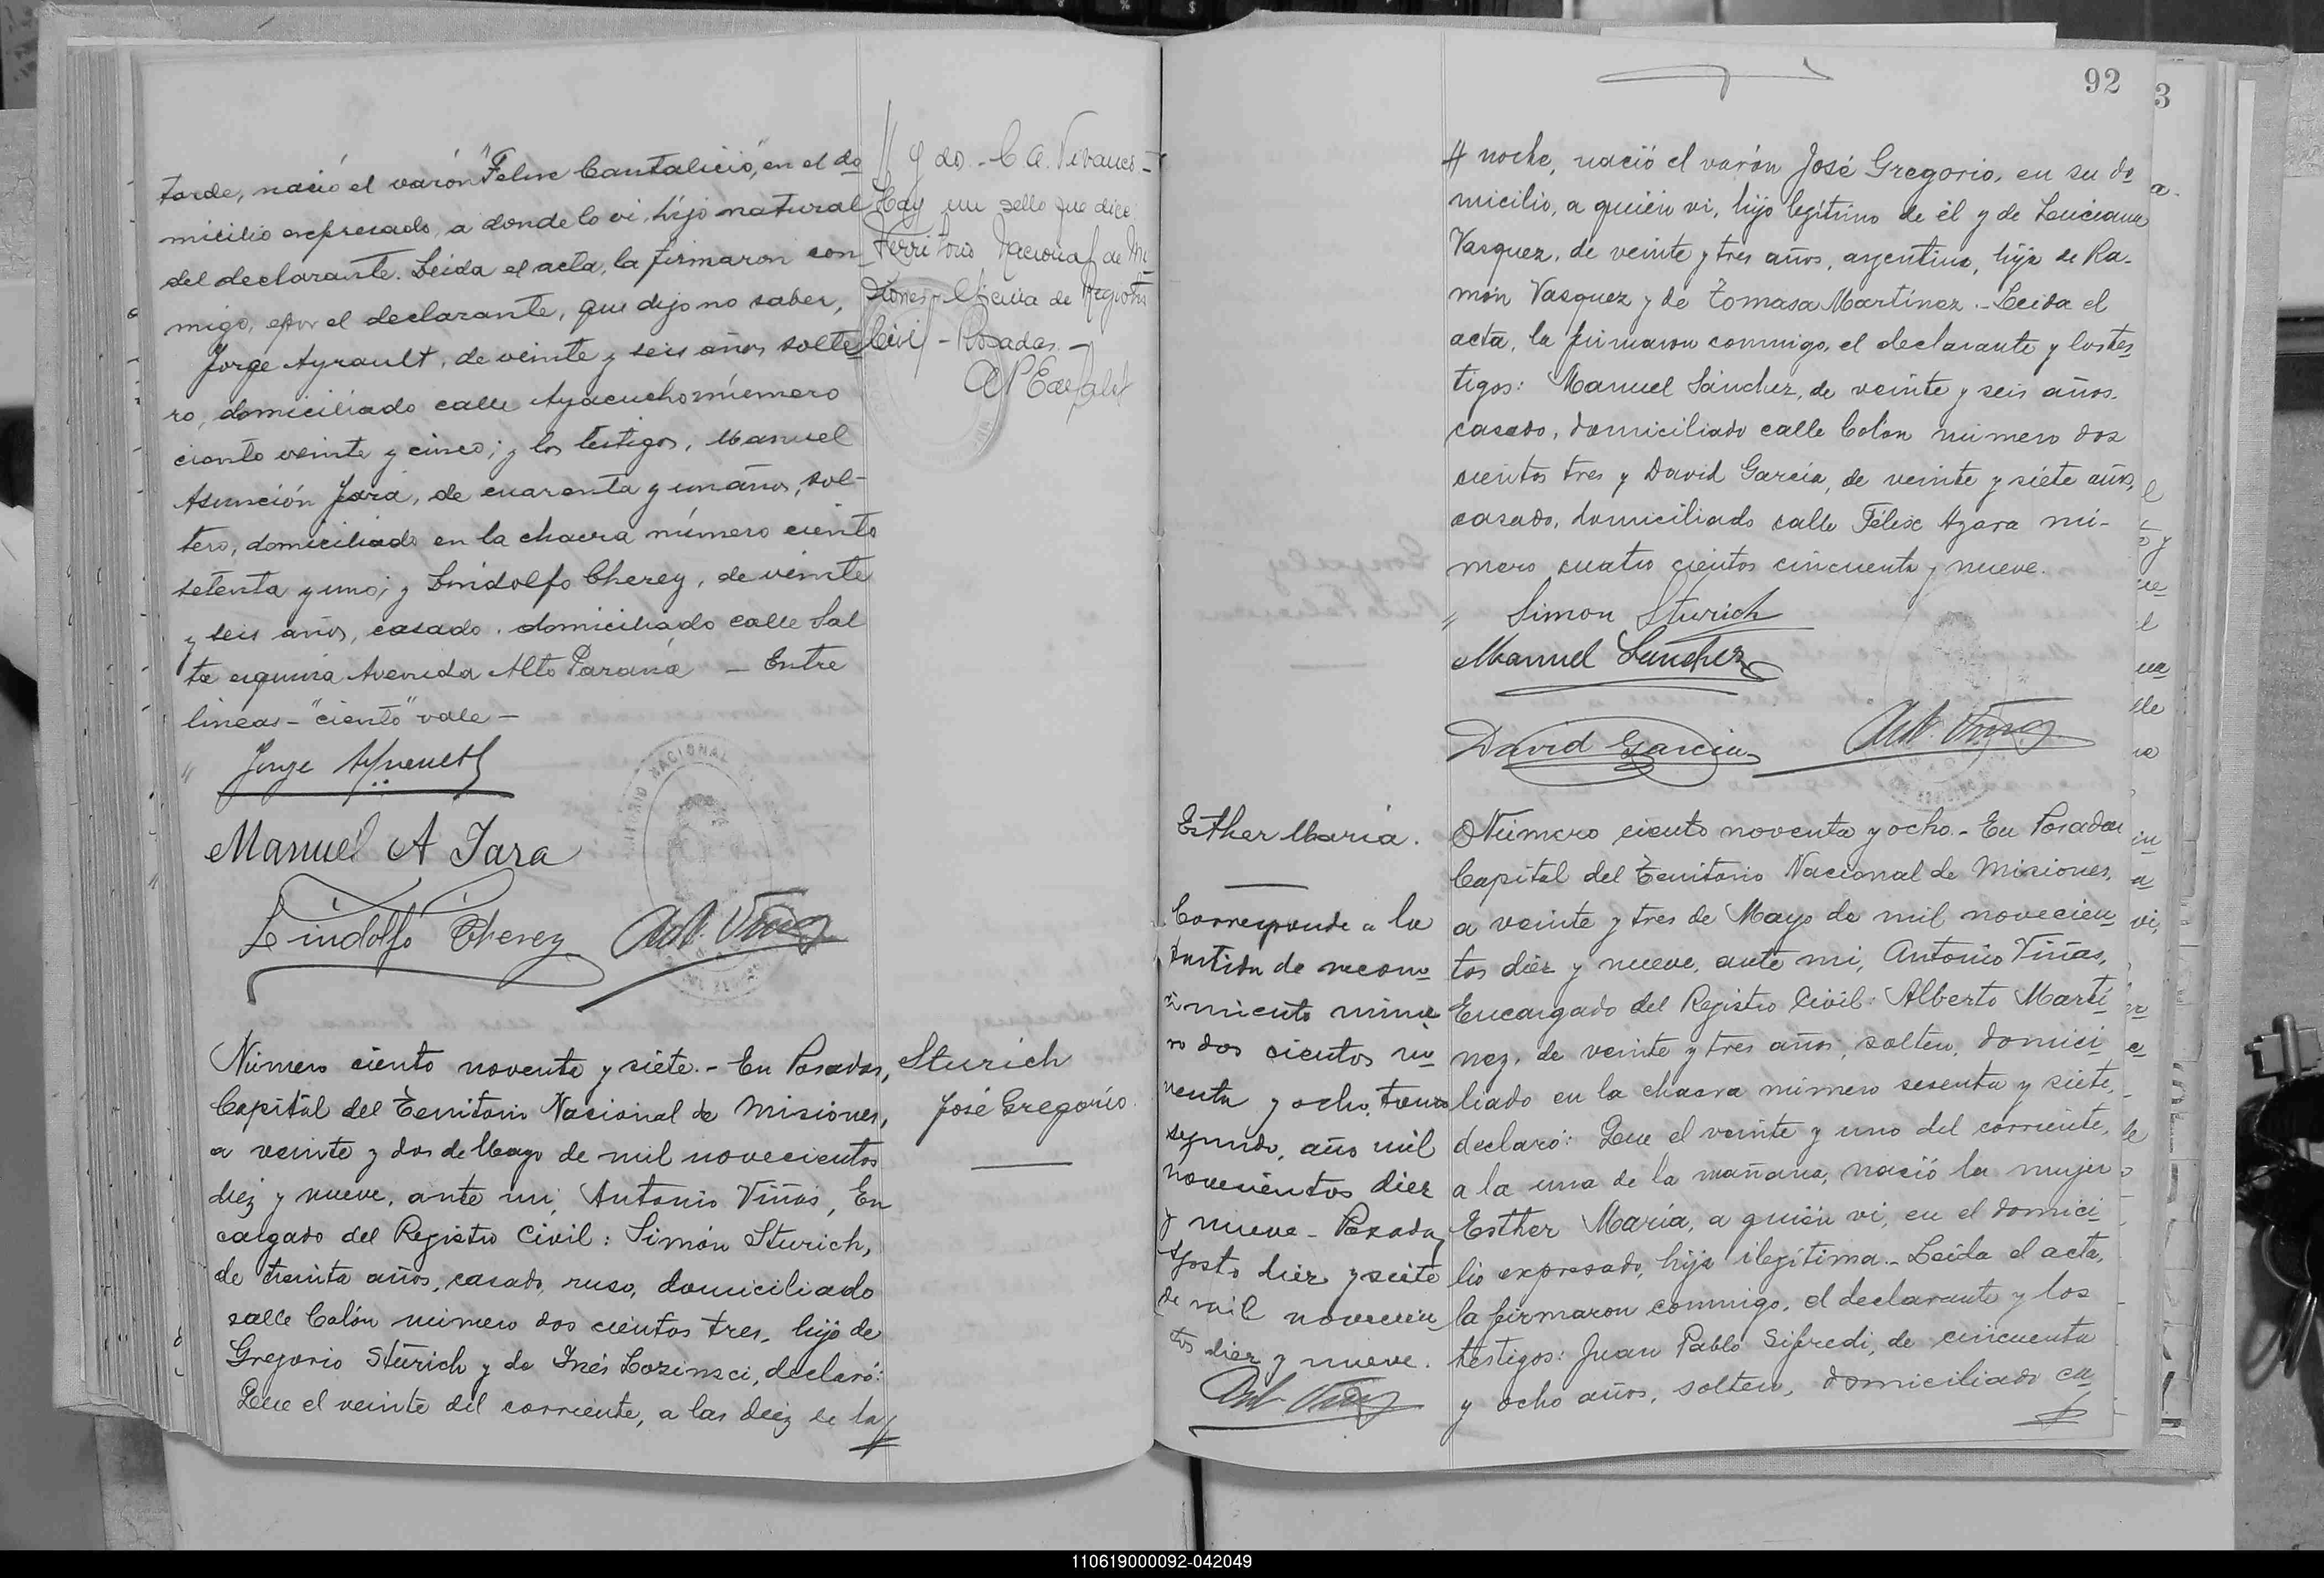 tarde, nació el varón "Felix Cantalicio", en el do
micilio expresado, a donde lo vi, hijo natural
del declarante. Leida el acta, la firmaron con
migo, por el declarante, que dijo no saber,
Jorge Ayrault, de veinte y seis años, solte
ro, domiciliado calle Ayacucho número
ciento veinte y cinco; y los testigos, Manuel
Asunción Jara, de cuarenta y un años, sol-
tero, domiciliado en la chacra número ciento
setenta y uno; y Lindolfo Cherey, de veinte
y seis años, casado, domiciliado calle Sal
ta esquina Avenida Alto Paraná — Entre
lineas - "ciento" vale —
Jorge Ayrault
Manuel A Jara
Lindolfo Cherey
Ant. Viñas
// gdo. - C. A. Vivanco -
Hay un sello que dice:
Territorio Nacional de Mi
siones - Oficina de Registro
Civil - Posadas. -
TERRITORIO NACIONAL
Número ciento noventa y siete. - En Posadas,
Capital del Territorio Nacional de Misiones,
a veinte y dos de Mayo de mil novecientos
diez y nueve, ante mi, Antonio Viñas, En
cargado del Registro Civil: Simón Sturich,
de treinta años, casado, ruso, domiciliado
calle Colón número dos cientos tres, hijo de
Gregorio Sturich y de Inés Lozinsci, declaró:
Que el veinte del corriente, a las diez de la //
Sturich
José Gregorio.
92
3
// noche, nació el varón José Gregorio, en su do
micilio, a quién vi, hijo legítimo de él y de Luciana
Vasquez, de veinte y tres años, argentina, hija de Ra-
món Vasquez y de Tomasa Martínez. - Leida el
acta, la firmaron conmigo, el declarante y los tes
tigos: Manuel Sánchez, de veinte y seis años,
casado, domiciliado calle Colón número dos
cientos tres y David García, de veinte y siete años,
casado, domiciliado calle Félix Azara nú-
mero cuatro cientos cincuenta y nueve.
Simon Sturich
Manuel Sanchez
David Garcia
Ant. Viñas
Esther María.
Corresponde a la
partida de recono
cimiento núme
ro dos cientos no
venta y ocho, tomo
segundo, año mil
novecientos diez
y nueve - Posadas,
Agosto diez y siete
de mil novecien
tos diez y nueve.
Ant. Viñas
Número ciento noventa y ocho. - En Posadas
Capital del Territorio Nacional de Misiones,
a veinte y tres de Mayo de mil novecien
tos diez y nueve, ante mi, Antonio Viñas,
Encargado del Registro Civil: Alberto Martí
nez, de veinte y tres años, soltero, domici
liado en la chacra número sesenta y siete,
declaró: Que el veinte y uno del corriente,
a la una de la mañana, nació la mujer
Esther María, a quién vi, en el domici
lio expresado, hija ilegítima. - Leída el acta,
la firmaron conmigo, el declarante y los
testigos: Juan Pablo Sifredi, de cincuenta
y ocho años, soltero, domiciliado ca
110619000092-042049